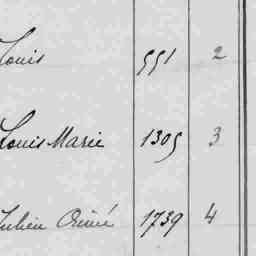 Louis 551 2
Louis Marie 1305 3
Julien Aimé 1739 4